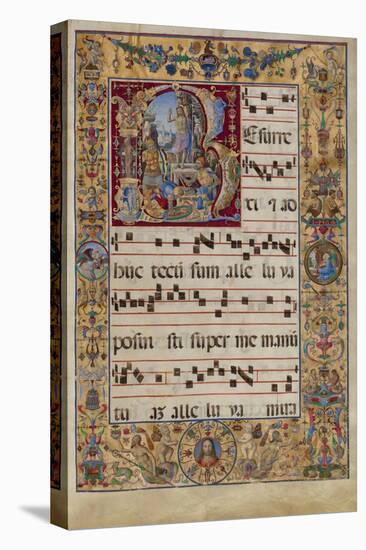 R esurre
xi ⁊ ad
huc tecū sum alle lu ya
posui sti super me manū
tu aȝ alle lu ya mira